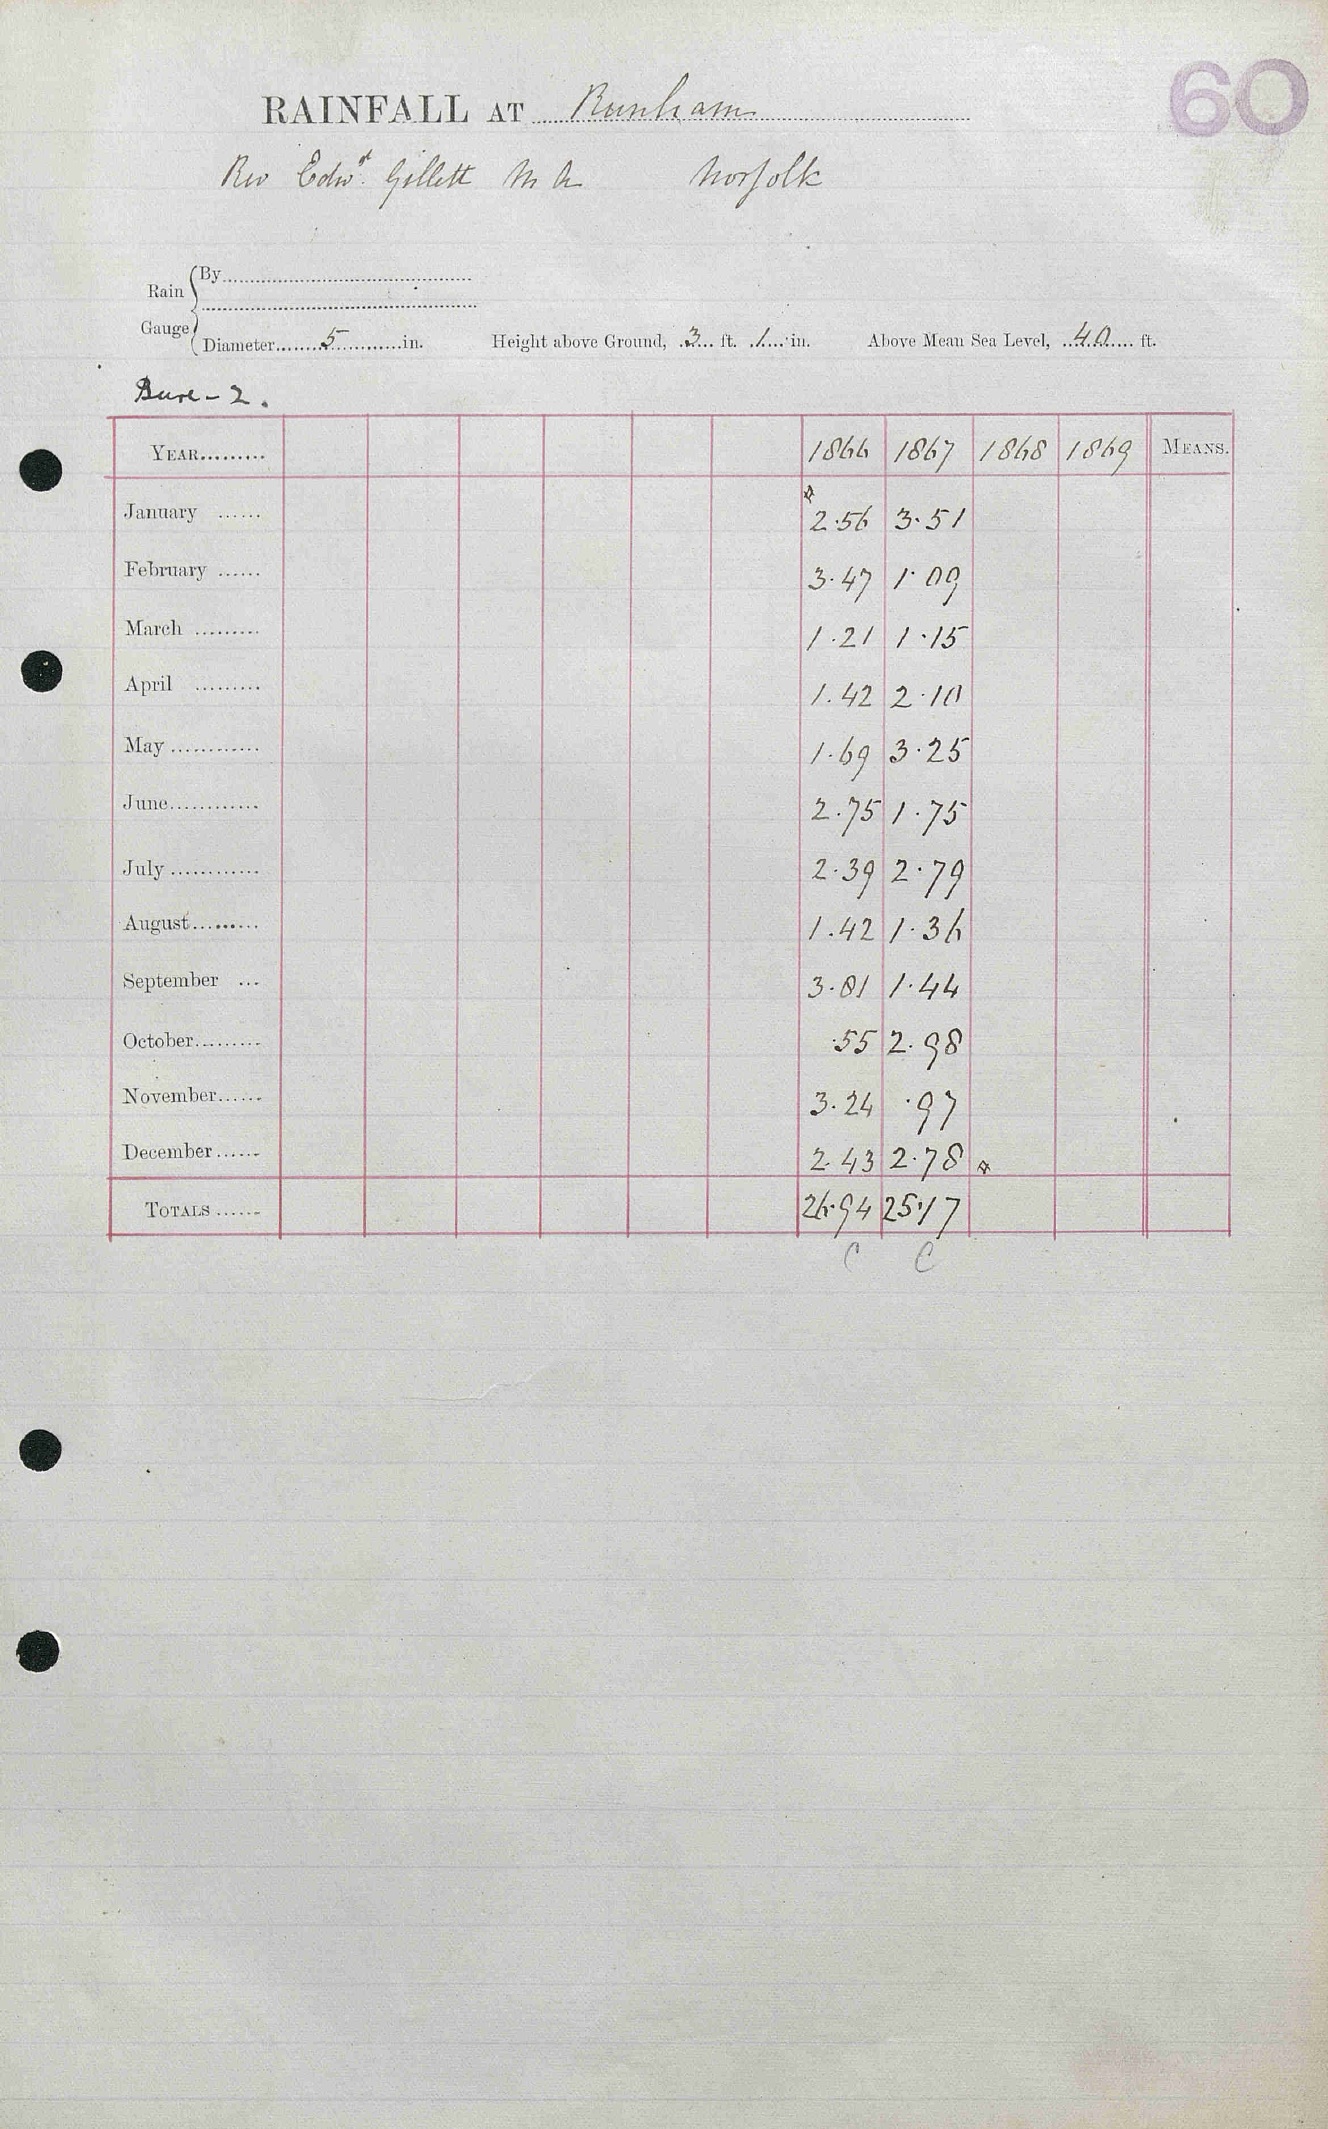 60
RAINFALL AT Runham
Rev Edwd. Gillett M A Norfolk
Rain Gauge { By
Diameter 5 in. Height above Ground, 3 ft. 1 in. Above Mean Sea Level, 40 ft.
Bure - 2.
YEAR 1866 1867 1868 1869 MEANS.
January 2.56 3.51
February 3.47 1.09
March 1.21 1.15
April 1.42 2.10
May 1.69 3.25
June 2.75 1.75
July 2.39 2.79
August 1.42 1.36
September 3.81 1.44
October .55 2.98
November 3.24 .97
December 2.43 2.78
TOTALS 26.94 25.17
C C